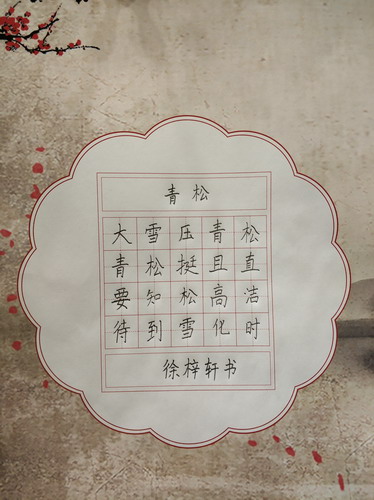 青松
大雪压青松
青松挺且直
要知松高洁
待到雪化时
徐梓轩书